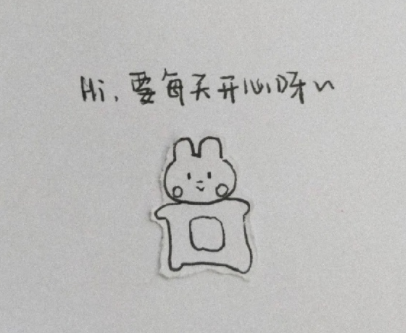 Hi, 要每天开心呀~